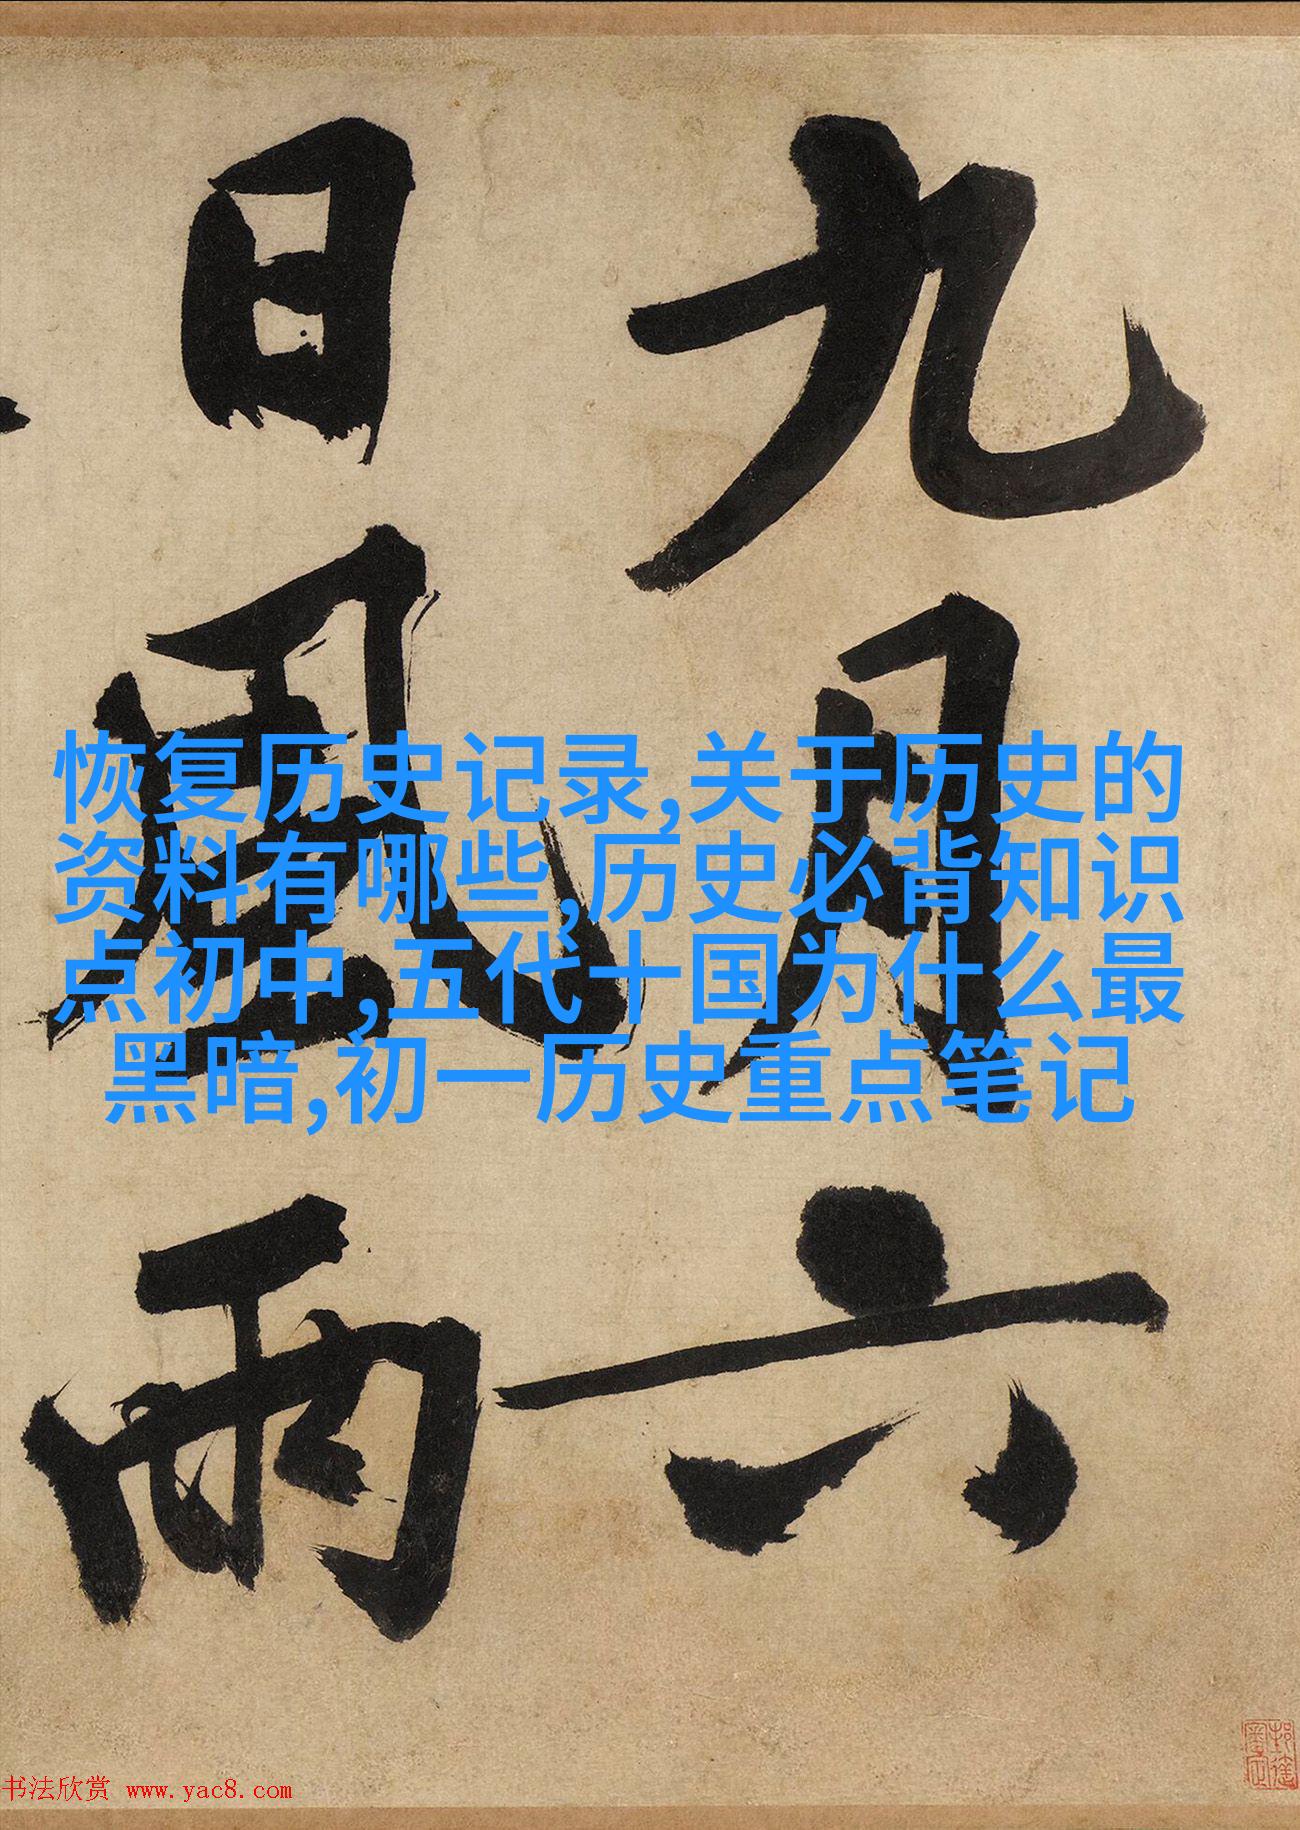 九月六
日風雨
恢复历史记录,关于历史的
资料有哪些,历史必背知识
点初中,五代十国为什么最
黑暗,初一历史重点笔记
书法欣赏 www.yac8.com